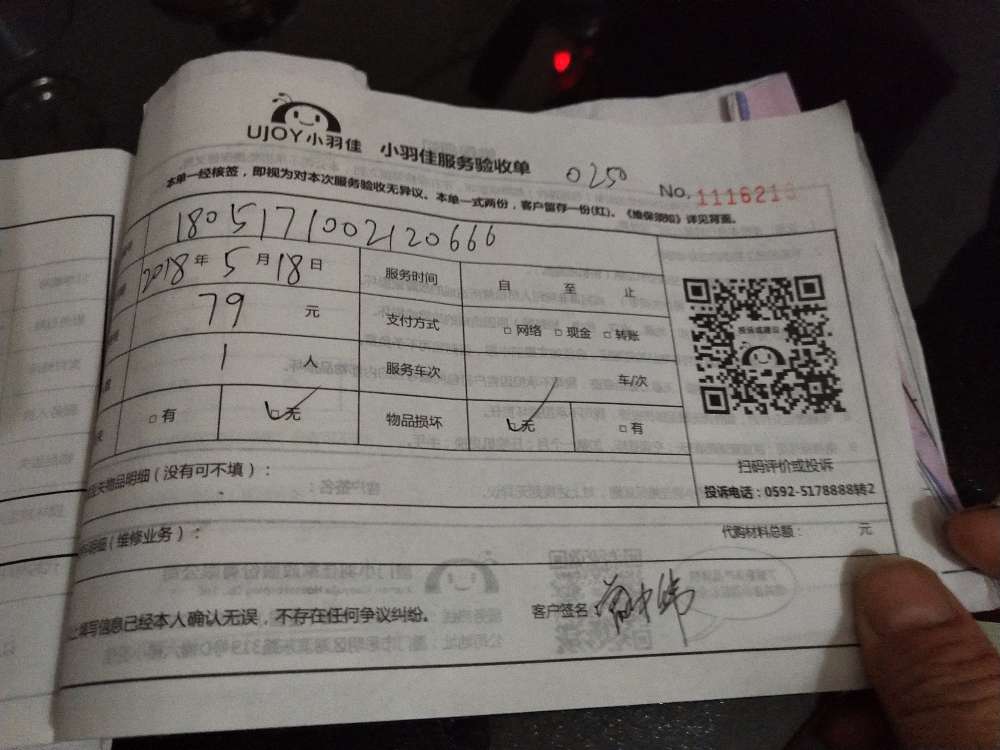 UJOY小羽佳 小羽佳服务验收单 0250 No. 1116216
本单一经核签，即视为对本次服务验收无异议。本单一式两份，客户留存一份(红)。《维保须知》详见背面。
1805171002120666
2018年5月18日 服务时间 自 至 止
79 元 支付方式 □网络 □现金 □转账
1 人 服务车次 车/次
□有 □无 物品损坏 □无 □有
投诉或建议
扫码评价或投诉
投诉电话：0592-5178888转2
物品明细（没有可不填）：
明细（维修业务）： 代购材料总额： 元
填写信息已经本人确认无误，不存在任何争议纠纷。 客户签名：